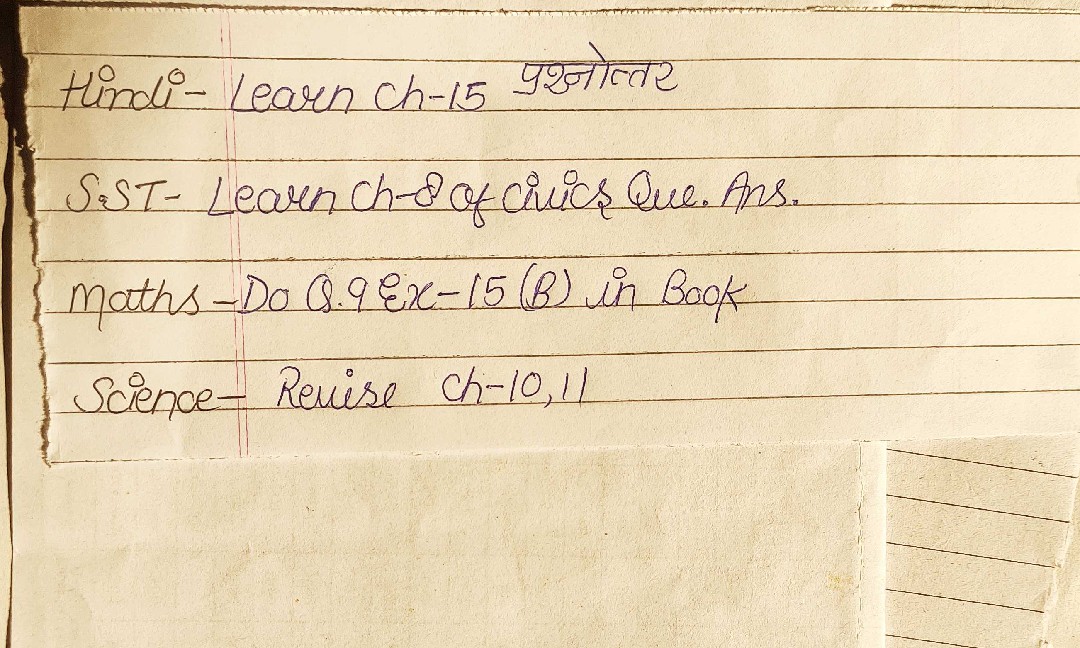 Hindi- Learn Ch-15 प्रश्नोत्तर
S.ST- Learn Ch-8 of Civics Que. Ans.
Maths-Do Q.9 Ex-15(B) in Book
Science- Revise Ch-10,11